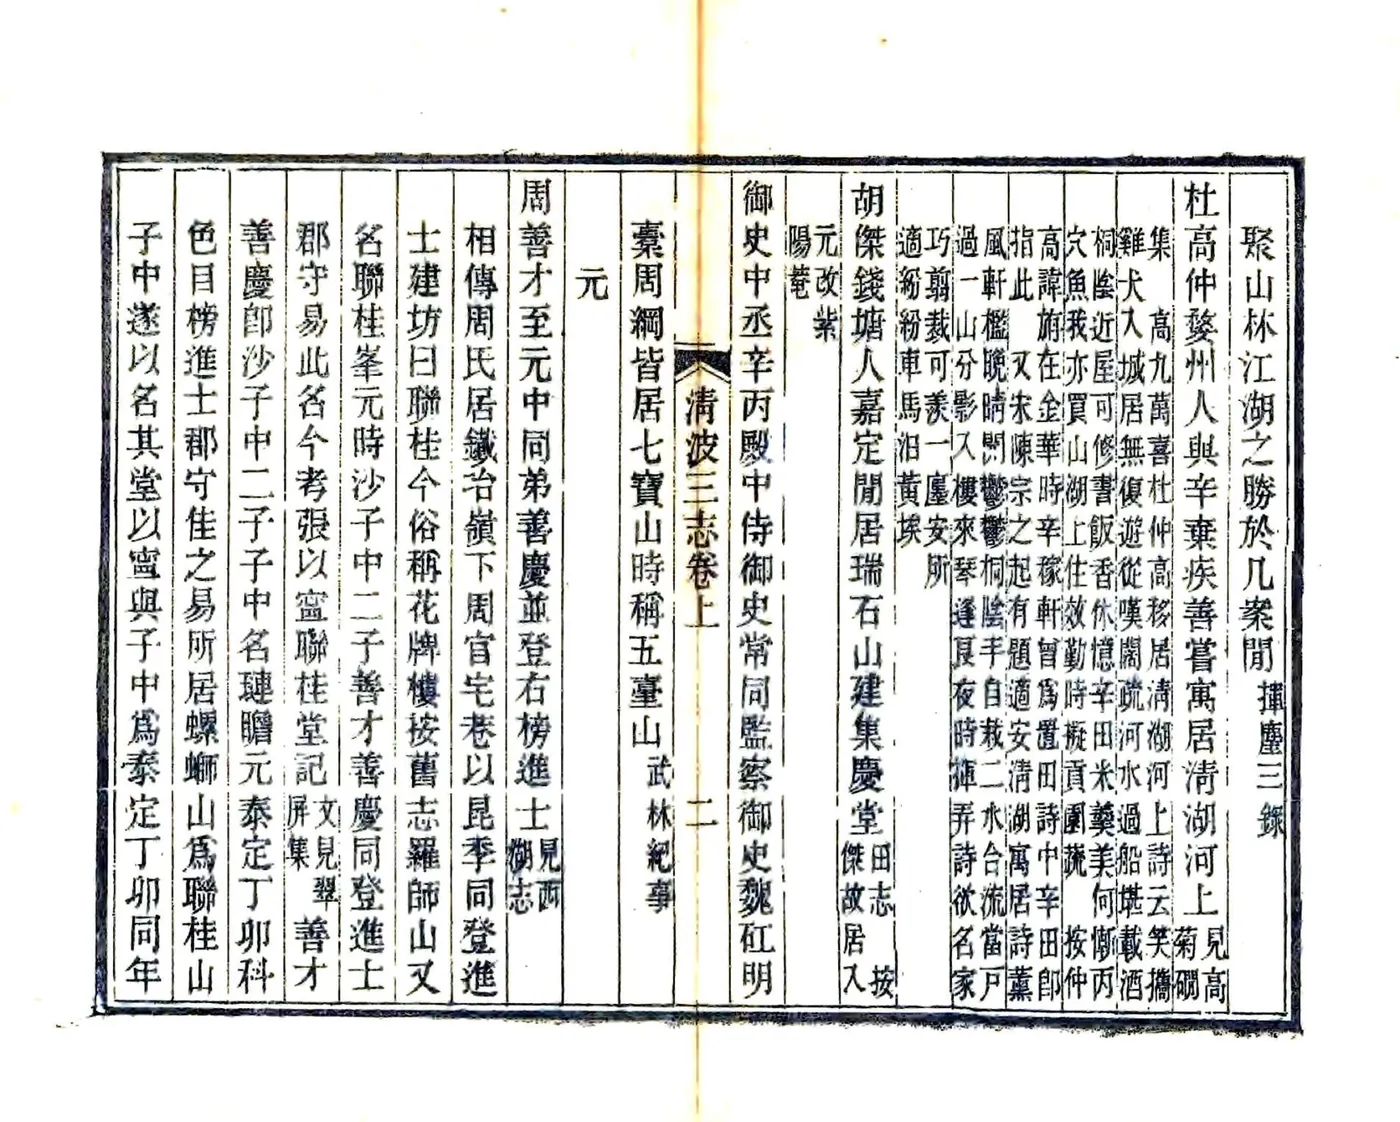 聚山林江湖之勝於几案閒揮麈三錄
杜高仲婺州人與辛棄疾善嘗寓居淸湖河上見高
菊磵
集 高九萬喜杜仲高移居淸湖河上詩云笑攜
雞犬入城居無復遊從嘆闊疏河水過船堪載酒
桐陰近屋可修書飯香休憶辛田米羹美何慚丙
穴魚我亦買山湖上住效勤時擬貢園蔬 按仲
高諱旃在金華時辛稼軒曾爲置田詩中辛田卽
指此 又宋陳宗之起有題適安淸湖寓居詩薰
風軒檻晚晴開鬱鬱桐陰手自栽二水台流當戶
過一山分影入樓來琴逢良夜時揮弄詩欲名家
巧翦裁可羨一廛安所
適紛紛車馬汨黃埃
胡傑錢塘人嘉定閒居瑞石山建集慶堂田志 按
傑故居入
元改紫
陽菴
御史中丞辛丙殿中侍御史常同監察御史魏矼明
淸波三志卷上 二
橐周綱皆居七寶山時稱五臺山武林紀事
元
周善才至元中同弟善慶並登右榜進士見西
湖志
相傳周氏居鐵冶嶺下周官宅巷以昆季同登進
士建坊曰聯桂今俗稱花牌樓按舊志羅師山又
名聯桂峯元時沙子中二子善才善慶同登進士
郡守易此名今考張以寧聯桂堂記文見翠
屏集善才
善慶卽沙子中二子子中名璉瞻元泰定丁卯科
色目榜進士郡守佳之易所居螺螄山爲聯桂山
子中遂以名其堂以寧與子中爲泰定丁卯同年